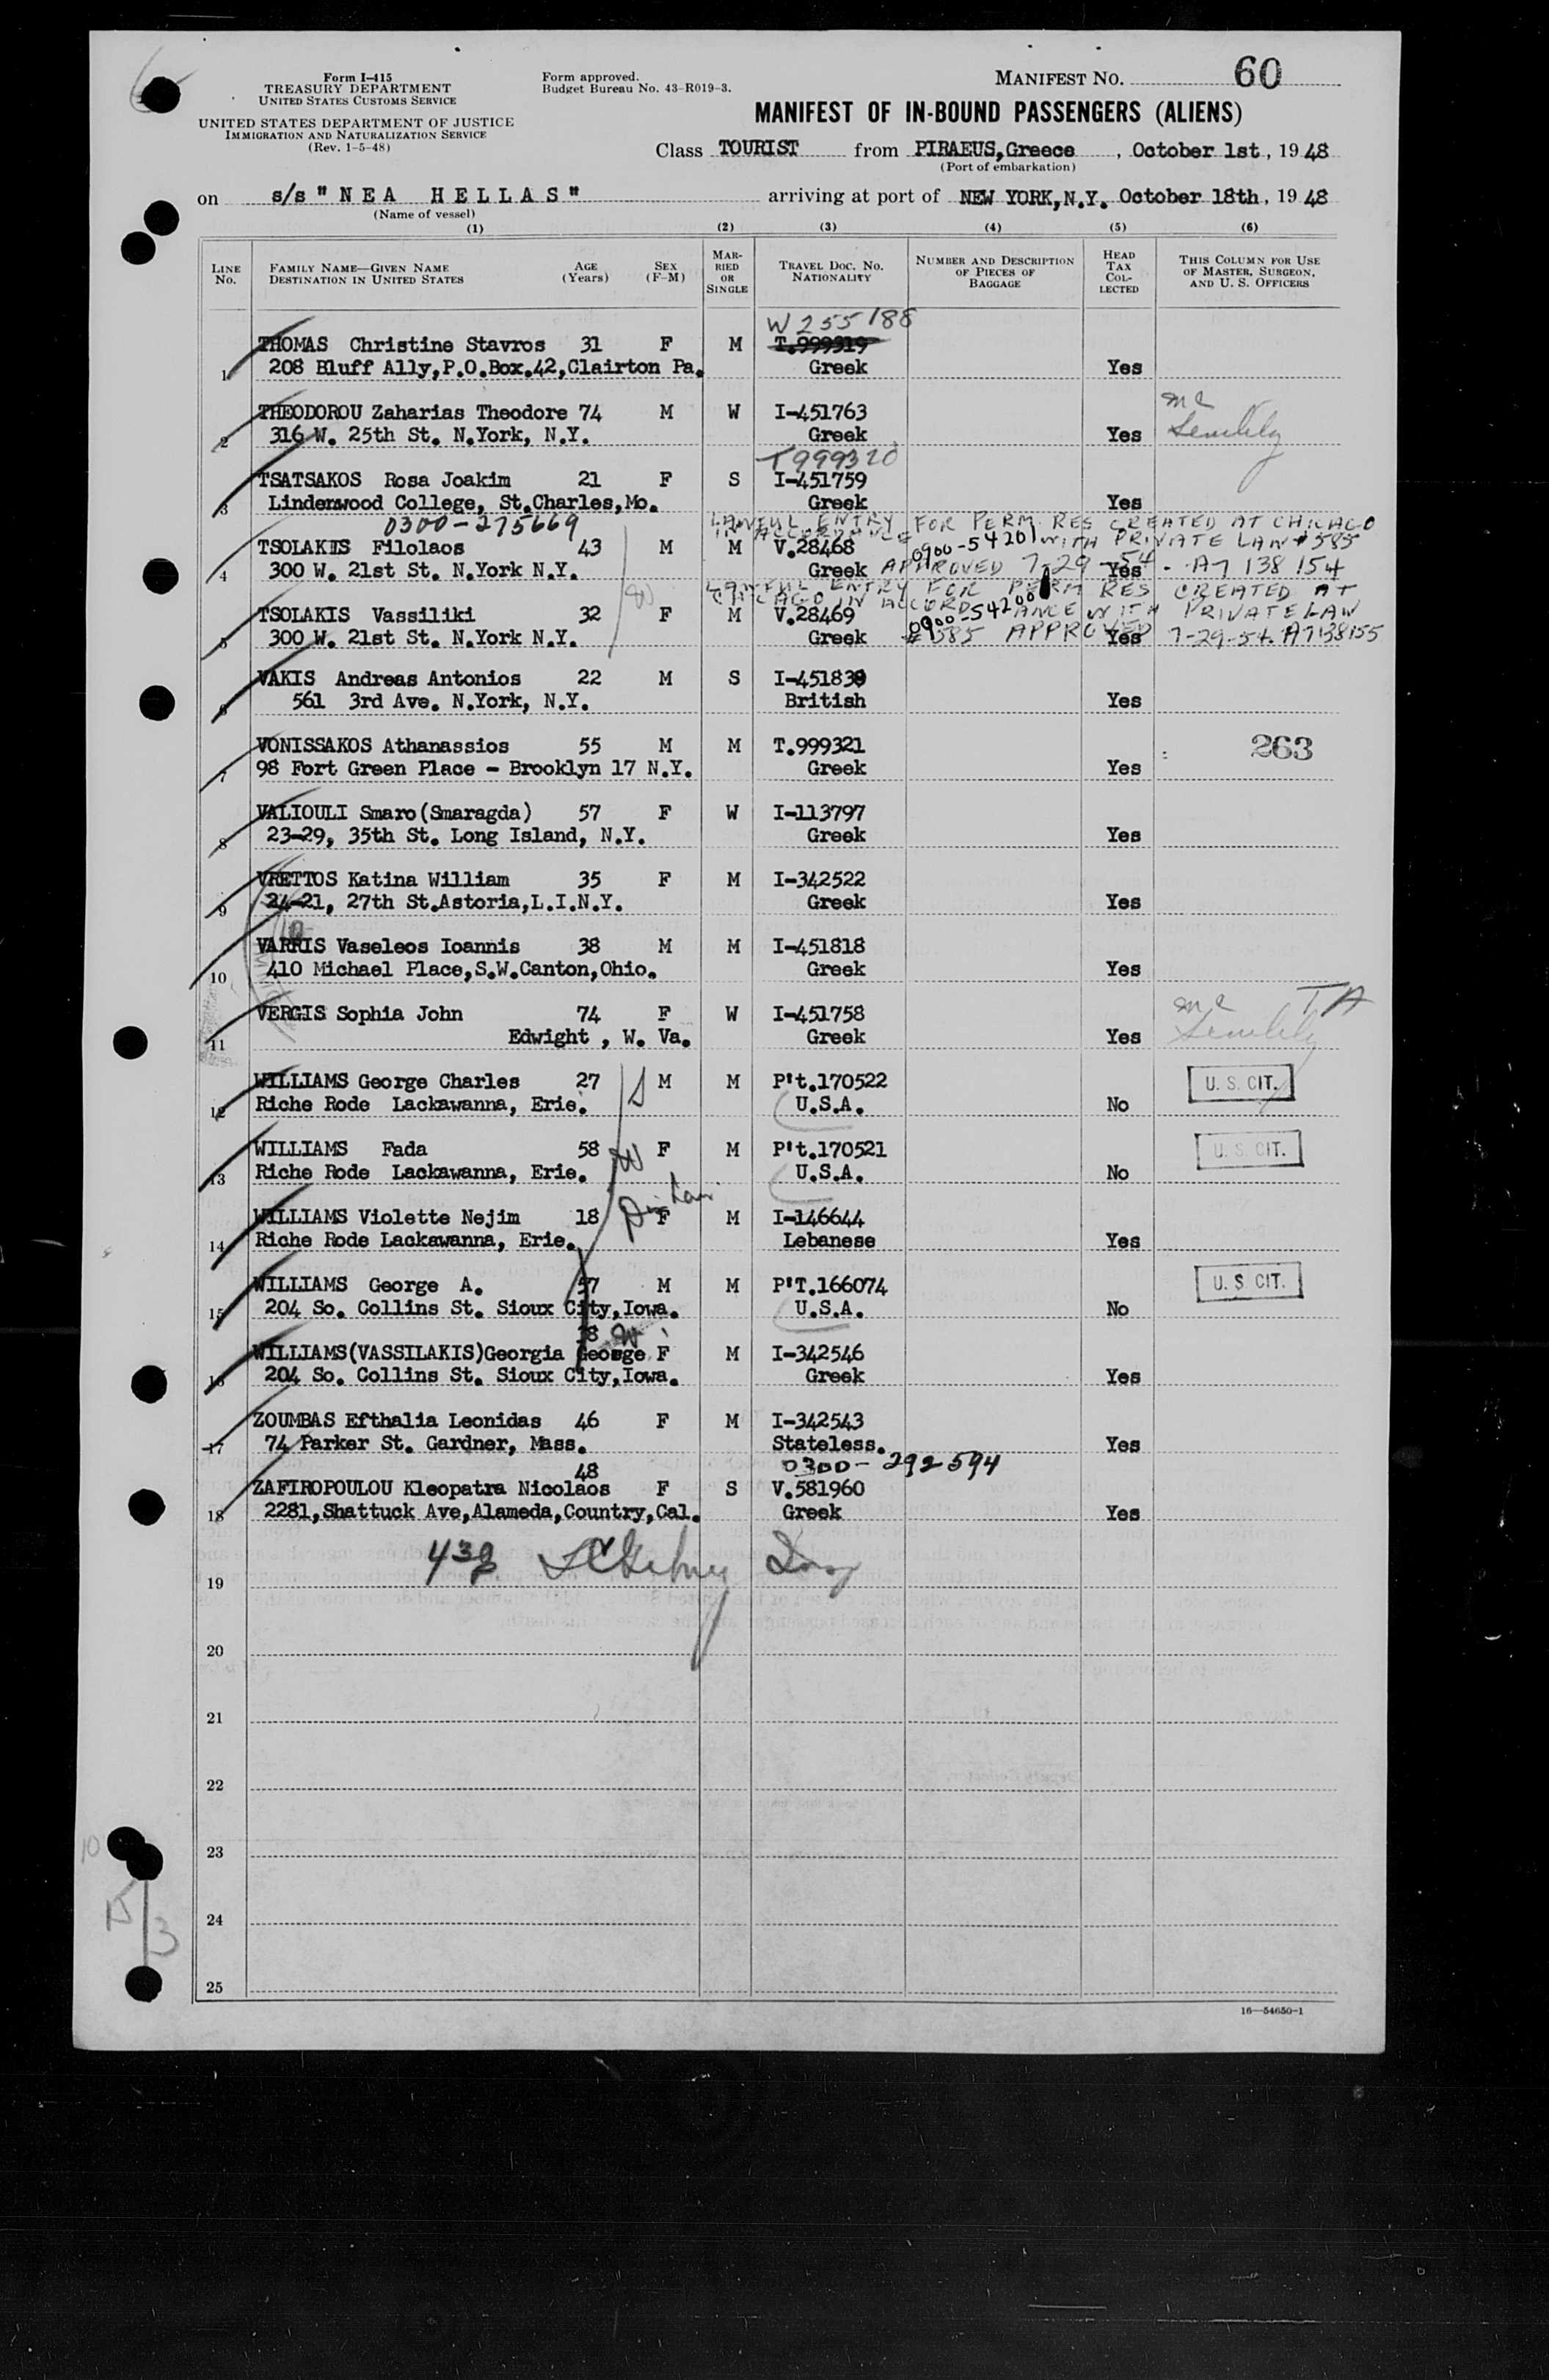 Form I-415
TREASURY DEPARTMENT
UNITED STATES CUSTOMS SERVICE
UNITED STATES DEPARTMENT OF JUSTICE
IMMIGRATION AND NATURALIZATION SERVICE
(Rev. 1-5-48)
Form approved.
Budget Bureau No. 43-R019-3.
MANIFEST NO. 60
MANIFEST OF IN-BOUND PASSENGERS (ALIENS)
Class TOURIST from PIRAEUS,Greece , October 1st, 19 48
(Port of embarkation)
on s/s " N E A H E L L A S " arriving at port of NEW YORK,N.Y. October 18th, 19 48
(Name of vessel)
(1) (2) (3) (4) (5) (6)
LINE No. FAMILY NAME—GIVEN NAME DESTINATION IN UNITED STATES AGE (Years) SEX (F-M) MARRIED OR SINGLE TRAVEL DOC. NO. NATIONALITY NUMBER AND DESCRIPTION OF PIECES OF BAGGAGE HEAD TAX COLLECTED THIS COLUMN FOR USE OF MASTER, SURGEON, AND U. S. OFFICERS
W 255188
THOMAS Christine Stavros 31 F M T.999319
1 208 Bluff Ally,P.O.Box.42,Clairton Pa. Greek Yes
THEODOROU Zaharias Theodore 74 M W I-451763
2 316 W. 25th St. N.York, N.Y. Greek Yes
T999320
TSATSAKOS Rosa Joakim 21 F S I-451759
3 Lindenwood College, St.Charles,Mo. Greek Yes
0300-275669 LAWFUL ENTRY FOR PERM RES CREATED AT CHICAGO
IN ACCORDANCE WITH PRIVATE LAW #585
TSOLAKIS Filolaos 43 M M V.28468 0900-54201
4 300 W. 21st St. N.York N.Y. Greek APPROVED 7-29-54. Yes A7 138 154
LAWFUL ENTRY FOR PERM RES CREATED AT
CHICAGO IN ACCORDANCE WITH PRIVATE LAW
TSOLAKIS Vassiliki 32 F M V.28469 0900-54200
5 300 W. 21st St. N.York N.Y. Greek #585 APPROVED Yes 7-29-54. A7138155
VAKIS Andreas Antonios 22 M S I-451839
6 561 3rd Ave. N.York, N.Y. British Yes
VONISSAKOS Athanassios 55 M M T.999321 263
7 98 Fort Green Place - Brooklyn 17 N.Y. Greek Yes
VALIOULI Smaro(Smaragda) 57 F W I-113797
8 23-29, 35th St. Long Island, N.Y. Greek Yes
VRETTOS Katina William 35 F M I-342522
9 24-21, 27th St.Astoria,L.I.N.Y. Greek Yes
VARRIS Vaseleos Ioannis 38 M M I-451818
10 410 Michael Place,S.W.Canton,Ohio. Greek Yes
VERGIS Sophia John 74 F W I-451758 TA
11 Edwight , W. Va. Greek Yes
WILLIAMS George Charles 27 M M P't.170522 U. S. CIT.
12 Riche Rode Lackawanna, Erie. U.S.A. No
WILLIAMS Fada 58 F M P't.170521 U. S. CIT.
13 Riche Rode Lackawanna, Erie. U.S.A. No
WILLIAMS Violette Nejim 18 F M I-146644
14 Riche Rode Lackawanna, Erie. Lebanese Yes
WILLIAMS George A. 57 M M P'T.166074 U. S. CIT.
15 204 So. Collins St. Sioux City,Iowa. U.S.A. No
38 W
WILLIAMS(VASSILAKIS)Georgia George F M I-342546
16 204 So. Collins St. Sioux City,Iowa. Greek Yes
ZOUMBAS Efthalia Leonidas 46 F M I-342543
17 74 Parker St. Gardner, Mass. Stateless. Yes
48 0300-292594
ZAFIROPOULOU Kleopatra Nicolaos F S V.581960
18 2281,Shattuck Ave,Alameda,Country,Cal. Greek Yes
19
20
21
22
23
24
25
16—54650-1